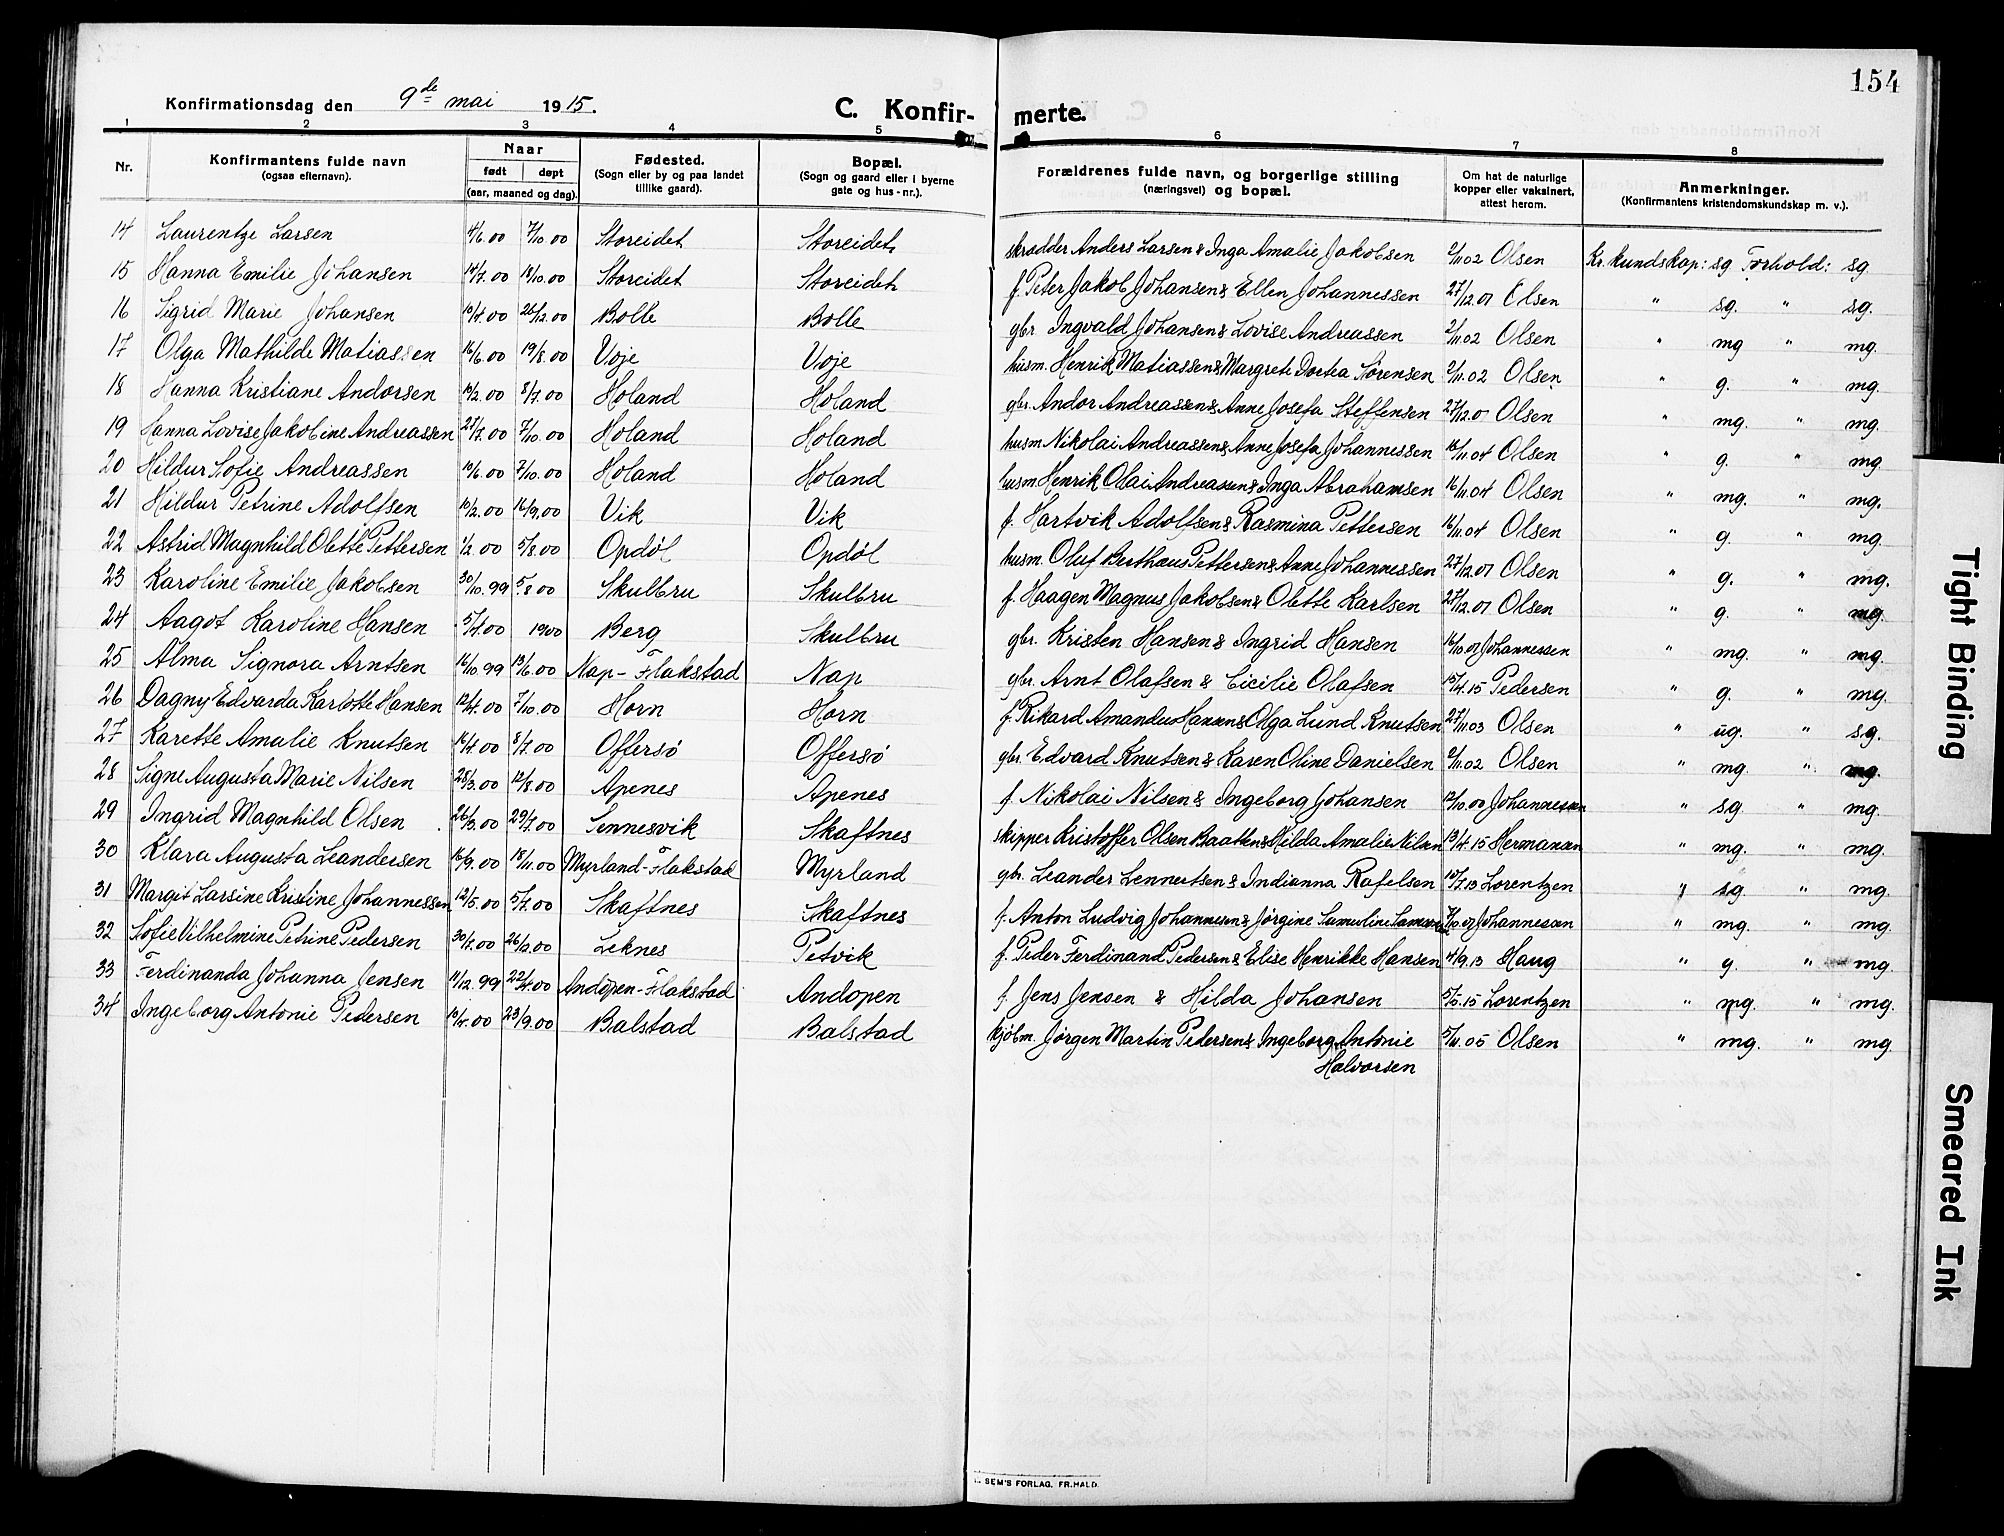 154
Konfirmationsdag den 9de mai 1915.
C. Konfir-merte.
1 2 3 4 5 6 7 8
Nr.
Konfirmantens fulde navn
(ogsaa efternavn).
Naar
født døpt
(aar, maaned og dag).
Fødested.
(Sogn eller by og paa landet
tillike gaard).
Bopæl.
(Sogn og gaard eller i byerne
gate og hus-nr.).
Forældrenes fulde navn, og borgerlige stilling
(næringsvei) og bopæl.
Om hat de naturlige
kopper eller vaksinert,
attest herom.
Anmerkninger.
(Konfirmantens kristendomskundskap m. v.).
14 Laurentze Larsen 4/6.00 7/10.00 Storeidet Storeidet skrædder Anders Larsen & Inga Amalie Jakobsen 2/11 02 Olsen Kr. kundskap: sg Forhold: sg.
15 Hanna Emilie Johansen 14/7.00 /10.00 Storeidet Storeidet f. Peter Jakob Johansen & Ellen Johannessen 27/12.01 Olsen " sg. " sg.
16 Sigrid Marie Johansen 10/4.00 26/12.00 Bolle Bolle gbr. Ingvald Johansen & Lovise Andreassen 2/11 02 Olsen " mg " mg.
17 Olga Mathilde Matiassen 16/6.00 19/8.00 Voje Voje husm. Henrik Matiassen & Margrete Dortea Sørensen 2/11.02 Olsen " g. " mg.
18 Hanna Kristiane Andorsen /2.00 8/7.00 Holand Holand gbr. Andor Andreassen & Anne Josefa Steffensen 27/12.01 Olsen " mg. " mg.
19 Hanna Lovise Jakobine Andreassen 27/7.00 7/10.00 Holand Holand husm Nikolai Andreassen & Anne Josefa Johannessen 16/11.04 Olsen " g. " mg.
20 Hildur Sofie Andreassen 10/6.00 7/10.00 Holand Holand husm Henrik Olai Andreassen & Inga Abrahamsen 16/11.04 Olsen " mg. " mg.
21 Hildur Petrine Adolfsen 10/2.00 16/9.00 Vik Vik f. Hartvik Adolfsen & Rasmina Pettersen 16/11.04 Olsen " g. " mg.
22 Astrid Magnhild Olette Pettersen 1/2.00 5/8.00 Opdøl Opdøl husm. Oluf Berthæus Pettersen & Anne Johannessen 27/12.01 Olsen " g. " mg.
23 Karoline Emilie Jakobsen 30/10.99 5/8 00 Skulbru Skulbru f. Haagen Magnus Jakobsen & Olette Karlsen 27/12.01 Olsen " g. " mg.
24 Aagot Karoline Hansen 5/4.00 1900 Berg Skulbru gbr. Kristen Hansen & Ingrid Hansen 16/10.01 Johannessen " mg. " mg.
25 Alma Signora Arntsen 16/10.99 13/6.00 Nap-Flakstad Nap gbr. Arnt Olafsen & Cicilie Olafsen 15/4.15 Pedersen " g. " mg.
26 Dagny Edvarda Karlotte Hansen 12/4.00 7/10.00 Horn Horn f. Rikard Amandus Hansen & Olga Lund Knutsen 27/11.03 Olsen " ug. " sg.
27 Karette Amalie Knutsen 14/4.00 8/7.00 Offersø Offersø gbr. Edvard Knutsen & Karen Oline Danielsen 2/11.02 Olsen " mg. " mg.
28 Signe Augusta Marie Nilsen 28/3.00 12/8.00 Apenes Apenes f. Nikolai Nilsen & Ingeborg Johansen /10.00 Johannessen " sg. " mg.
29 Ingrid Magnhild Olsen 26/3.00 29/7.00 Sennesvik Skaftnes skipper Kristoffer Olsen Baatten & Hilda Amalie Nilsen 13/4.15 Hermansen " mg. " mg.
30 Klara Augusta Leandersen 16/9.00 18/11.00 Myrland-Flakstad Myrland gbr. Leander Lennertsen & Indianna Rafelsen 10/7.13 Lorentzen " sg. " mg.
31 Margit Larsine Kristine Johannessen 12/5.00 5/7.00 Skaftnes Skaftnes f. Anton Ludvig Johannesen & Jørgine Samueline /10.01 Johannessen " mg. " mg.
32 Sofie Vilhelmine Petrine Pedersen 30/8.00 26/12.00 Leknes Petvik f. Peder Ferdinand Pedersen & Elise Henrikke Hansen 4/9.13 Haug " g. " mg.
33 Ferdinanda Johanna Jensen 11/12.99 22/4.00 Andopen-Flakstad Andopen f. Jens Jensen & Hilda Johansen 5/5.15 Lorentzen " mg. " mg.
34 Ingeborg Antonie Pedersen 10/4.00 23/9.00 Balstad Balstad kjøbm. Jørgen Martin Pedersen & Ingeborg Antonie 5/11.05 Olsen " mg. " mg.
Halvorsen
SEM'S FORLAG, FR.HALD.
Tight Binding
Smeared Ink